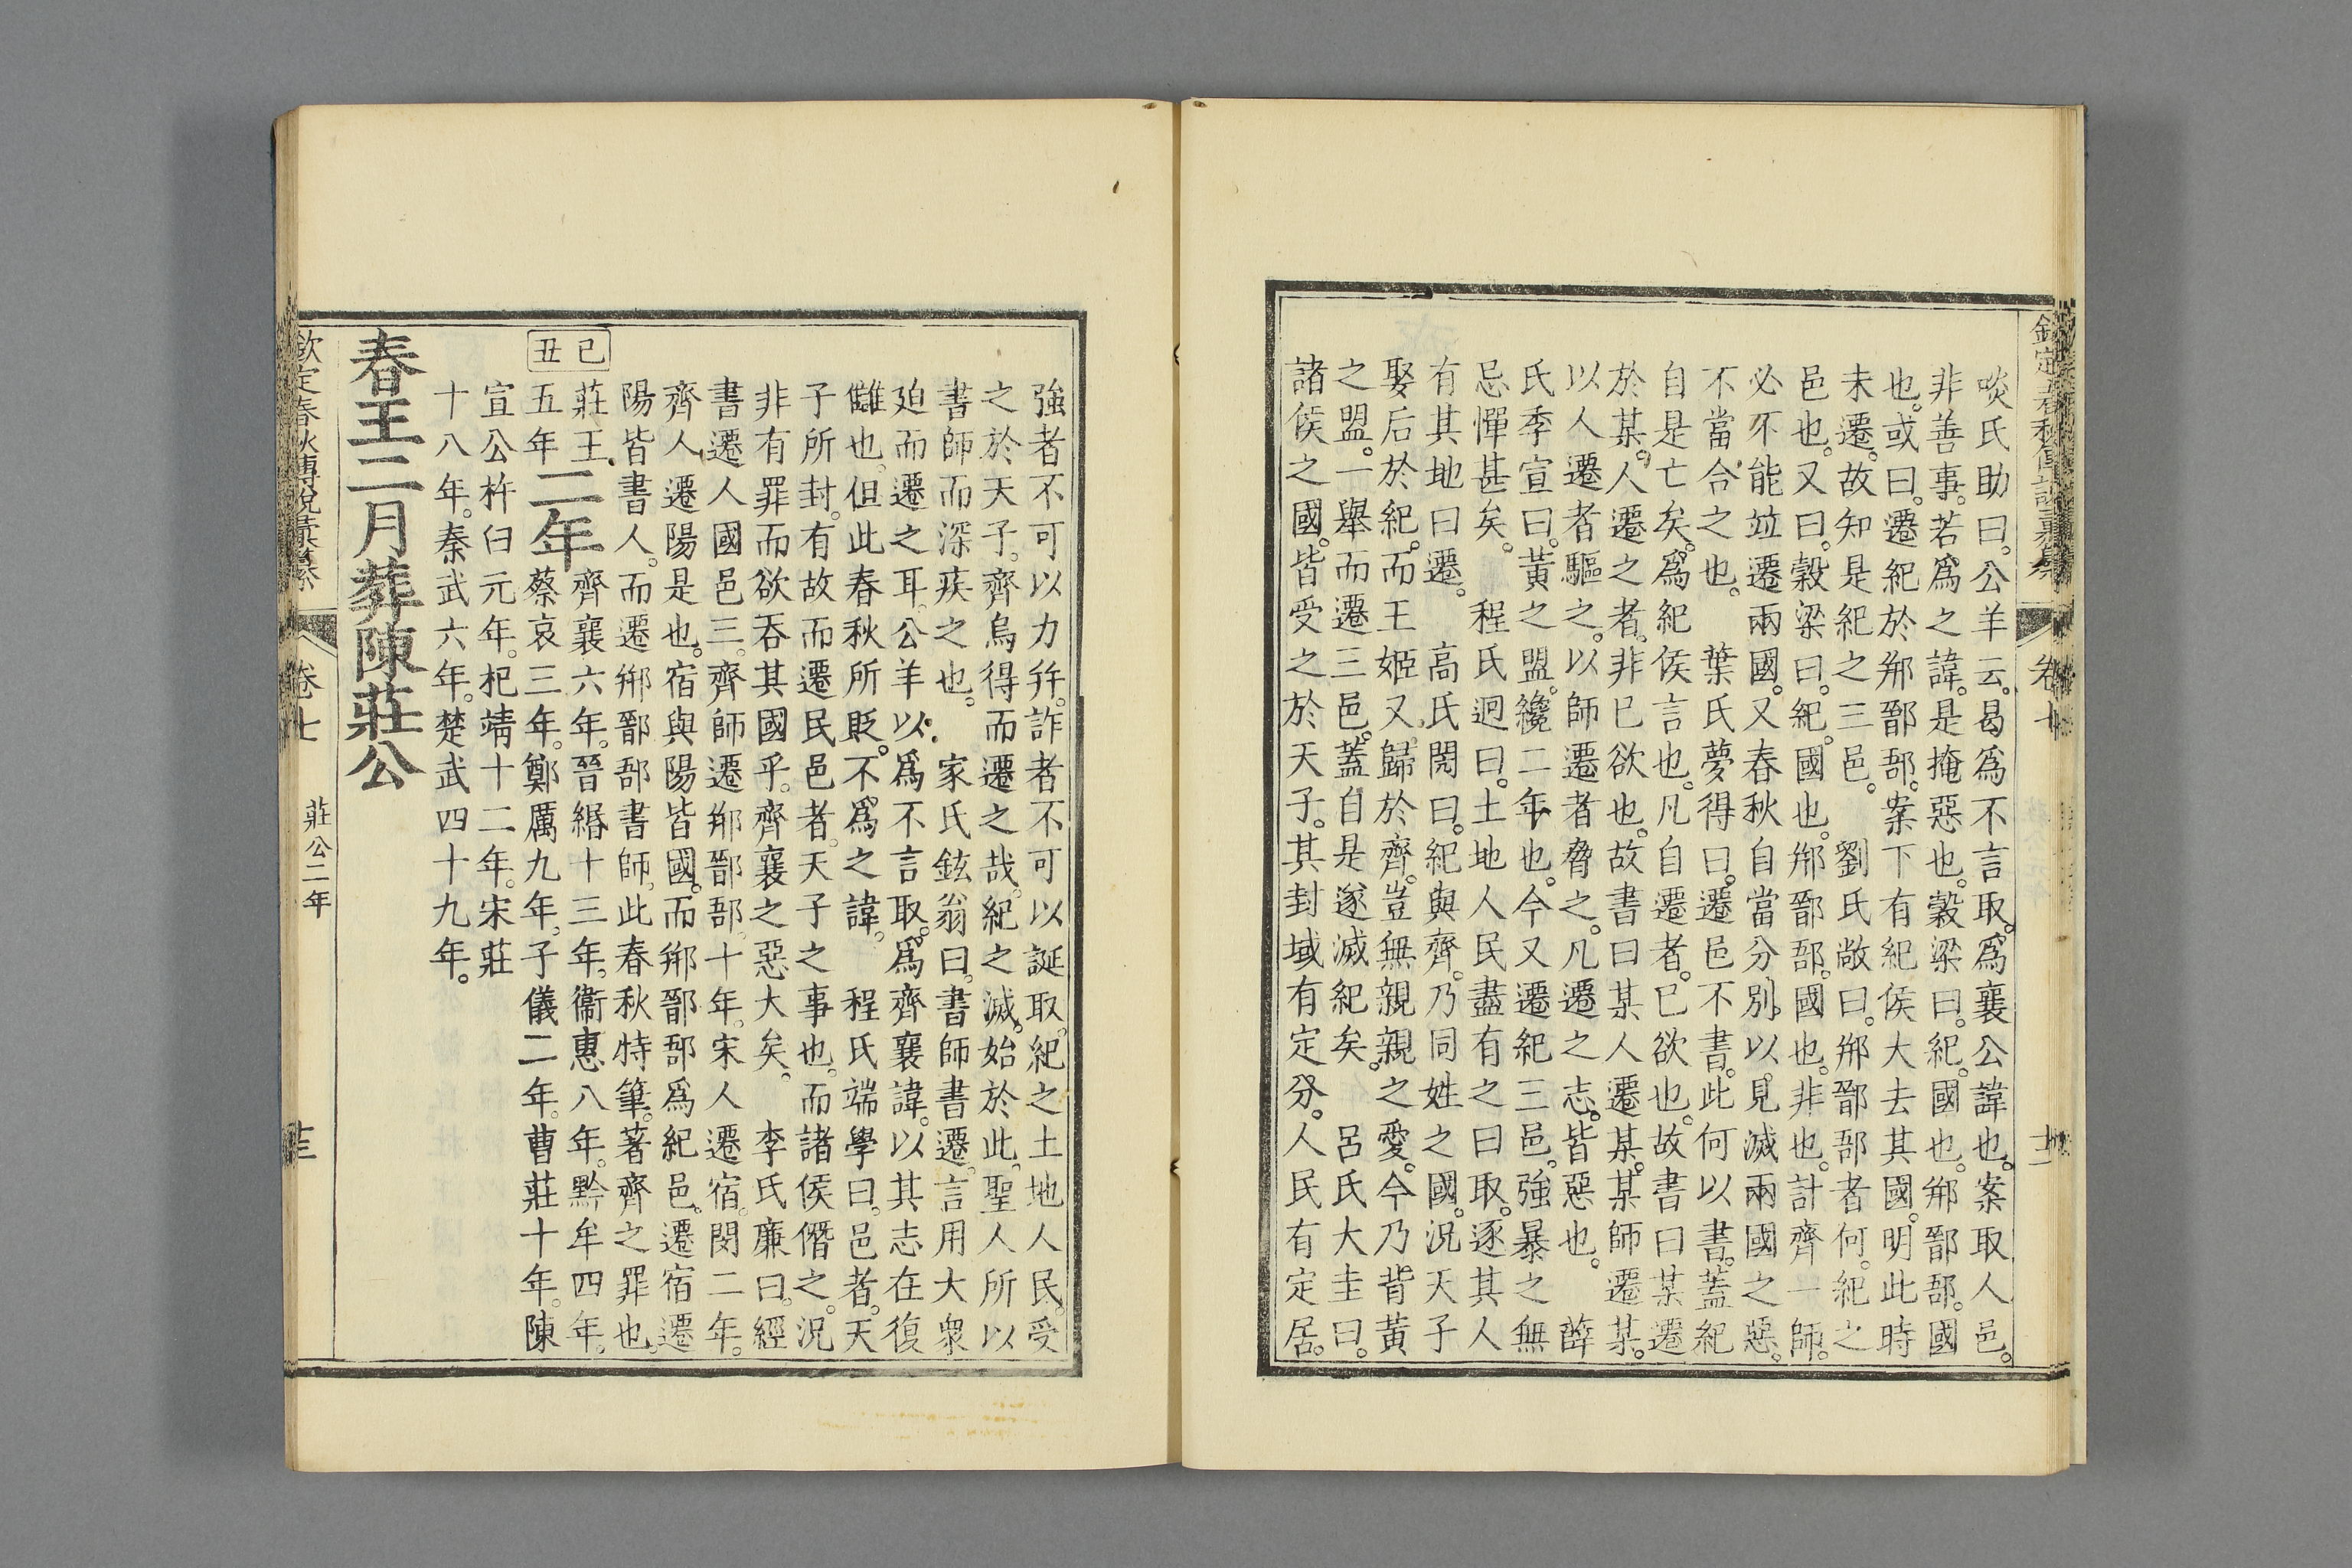 欽定春秋傳說彙纂 卷七 十二
啖氏助曰。公羊云。曷爲不言取。爲襄公諱也。案取人邑。
非善事。若爲之諱。是掩惡也。穀梁曰。紀。國也。郱鄑郚。國
也。或曰。遷紀於郱鄑郚。案下有紀侯大去其國。明此時
未遷。故知是紀之三邑。 劉氏敞曰。郱鄑郚者何。紀之
邑也。又曰。穀梁曰。紀。國也。郱鄑郚。國也。非也。計齊一師。
必不能竝遷兩國。又春秋自當分別。以見滅兩國之惡。
不當合之也。 葉氏夢得曰。遷邑不書。此何以書。蓋紀
自是亡矣。爲紀侯言也。凡自遷者。已欲也。故書曰某遷
於某。人遷之者。非已欲也。故書曰某人遷某。某師遷某。
以人遷者驅之。以師遷者脅之。凡遷之志。皆惡也。 薛
氏季宣曰。黃之盟。纔二年也。今又遷紀三邑。強暴之無
忌憚甚矣。 程氏迥曰。土地人民盡有之曰取。逐其人
有其地曰遷。 高氏閌曰。紀與齊。乃同姓之國。況天子
娶后於紀。而王姬又歸於齊。豈無親親之愛。今乃背黃
之盟。一舉而遷三邑。蓋自是遂滅紀矣。 呂氏大圭曰。
諸侯之國。皆受之於天子。其封域有定分。人民有定居。
強者不可以力幷。詐者不可以誕取。紀之土地人民。受
之於天子。齊烏得而遷之哉。紀之滅。始於此。聖人所以
書師而深疾之也。 家氏鉉翁曰。書師書遷。言用大衆
廹而遷之耳。公羊以爲不言取。爲齊襄諱。以其志在復
讎也。但此春秋所貶。不爲之諱。 程氏端學曰。邑者。天
子所封。有故而遷民邑者。天子之事也。而諸侯僭之。況
非有罪而欲吞其國乎。齊襄之惡大矣。 李氏廉曰。經
書遷人國邑三。齊師遷郱鄑郚。十年。宋人遷宿。閔二年。
齊人遷陽是也。宿與陽皆國。而郱鄑郚爲紀邑。遷宿遷
陽皆書人。而遷郱鄑郚書師。此春秋特筆。著齊之罪也。
己丑
莊王五年
二年
齊襄六年。晉緡十三年。衞惠八年。黔牟四年。
蔡哀三年。鄭厲九年。子儀二年。曹莊十年。陳
宣公杵臼元年。杞靖十二年。宋莊
十八年。秦武六年。楚武四十九年。
春王二月葬陳莊公
欽定春秋傳說彙纂 卷七 莊公二年 十三